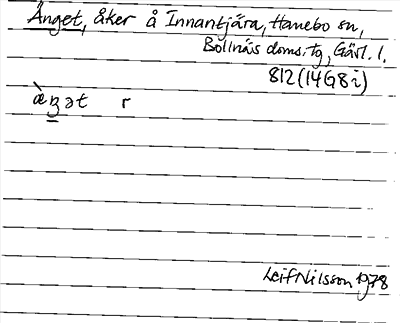 Änget, åker å Innantjära, Hanebo sn,
Bollnäs doms. tg, Gävl. l.
812 (14G8i)
æ̀ŋət r
Leif Nilsson 1978